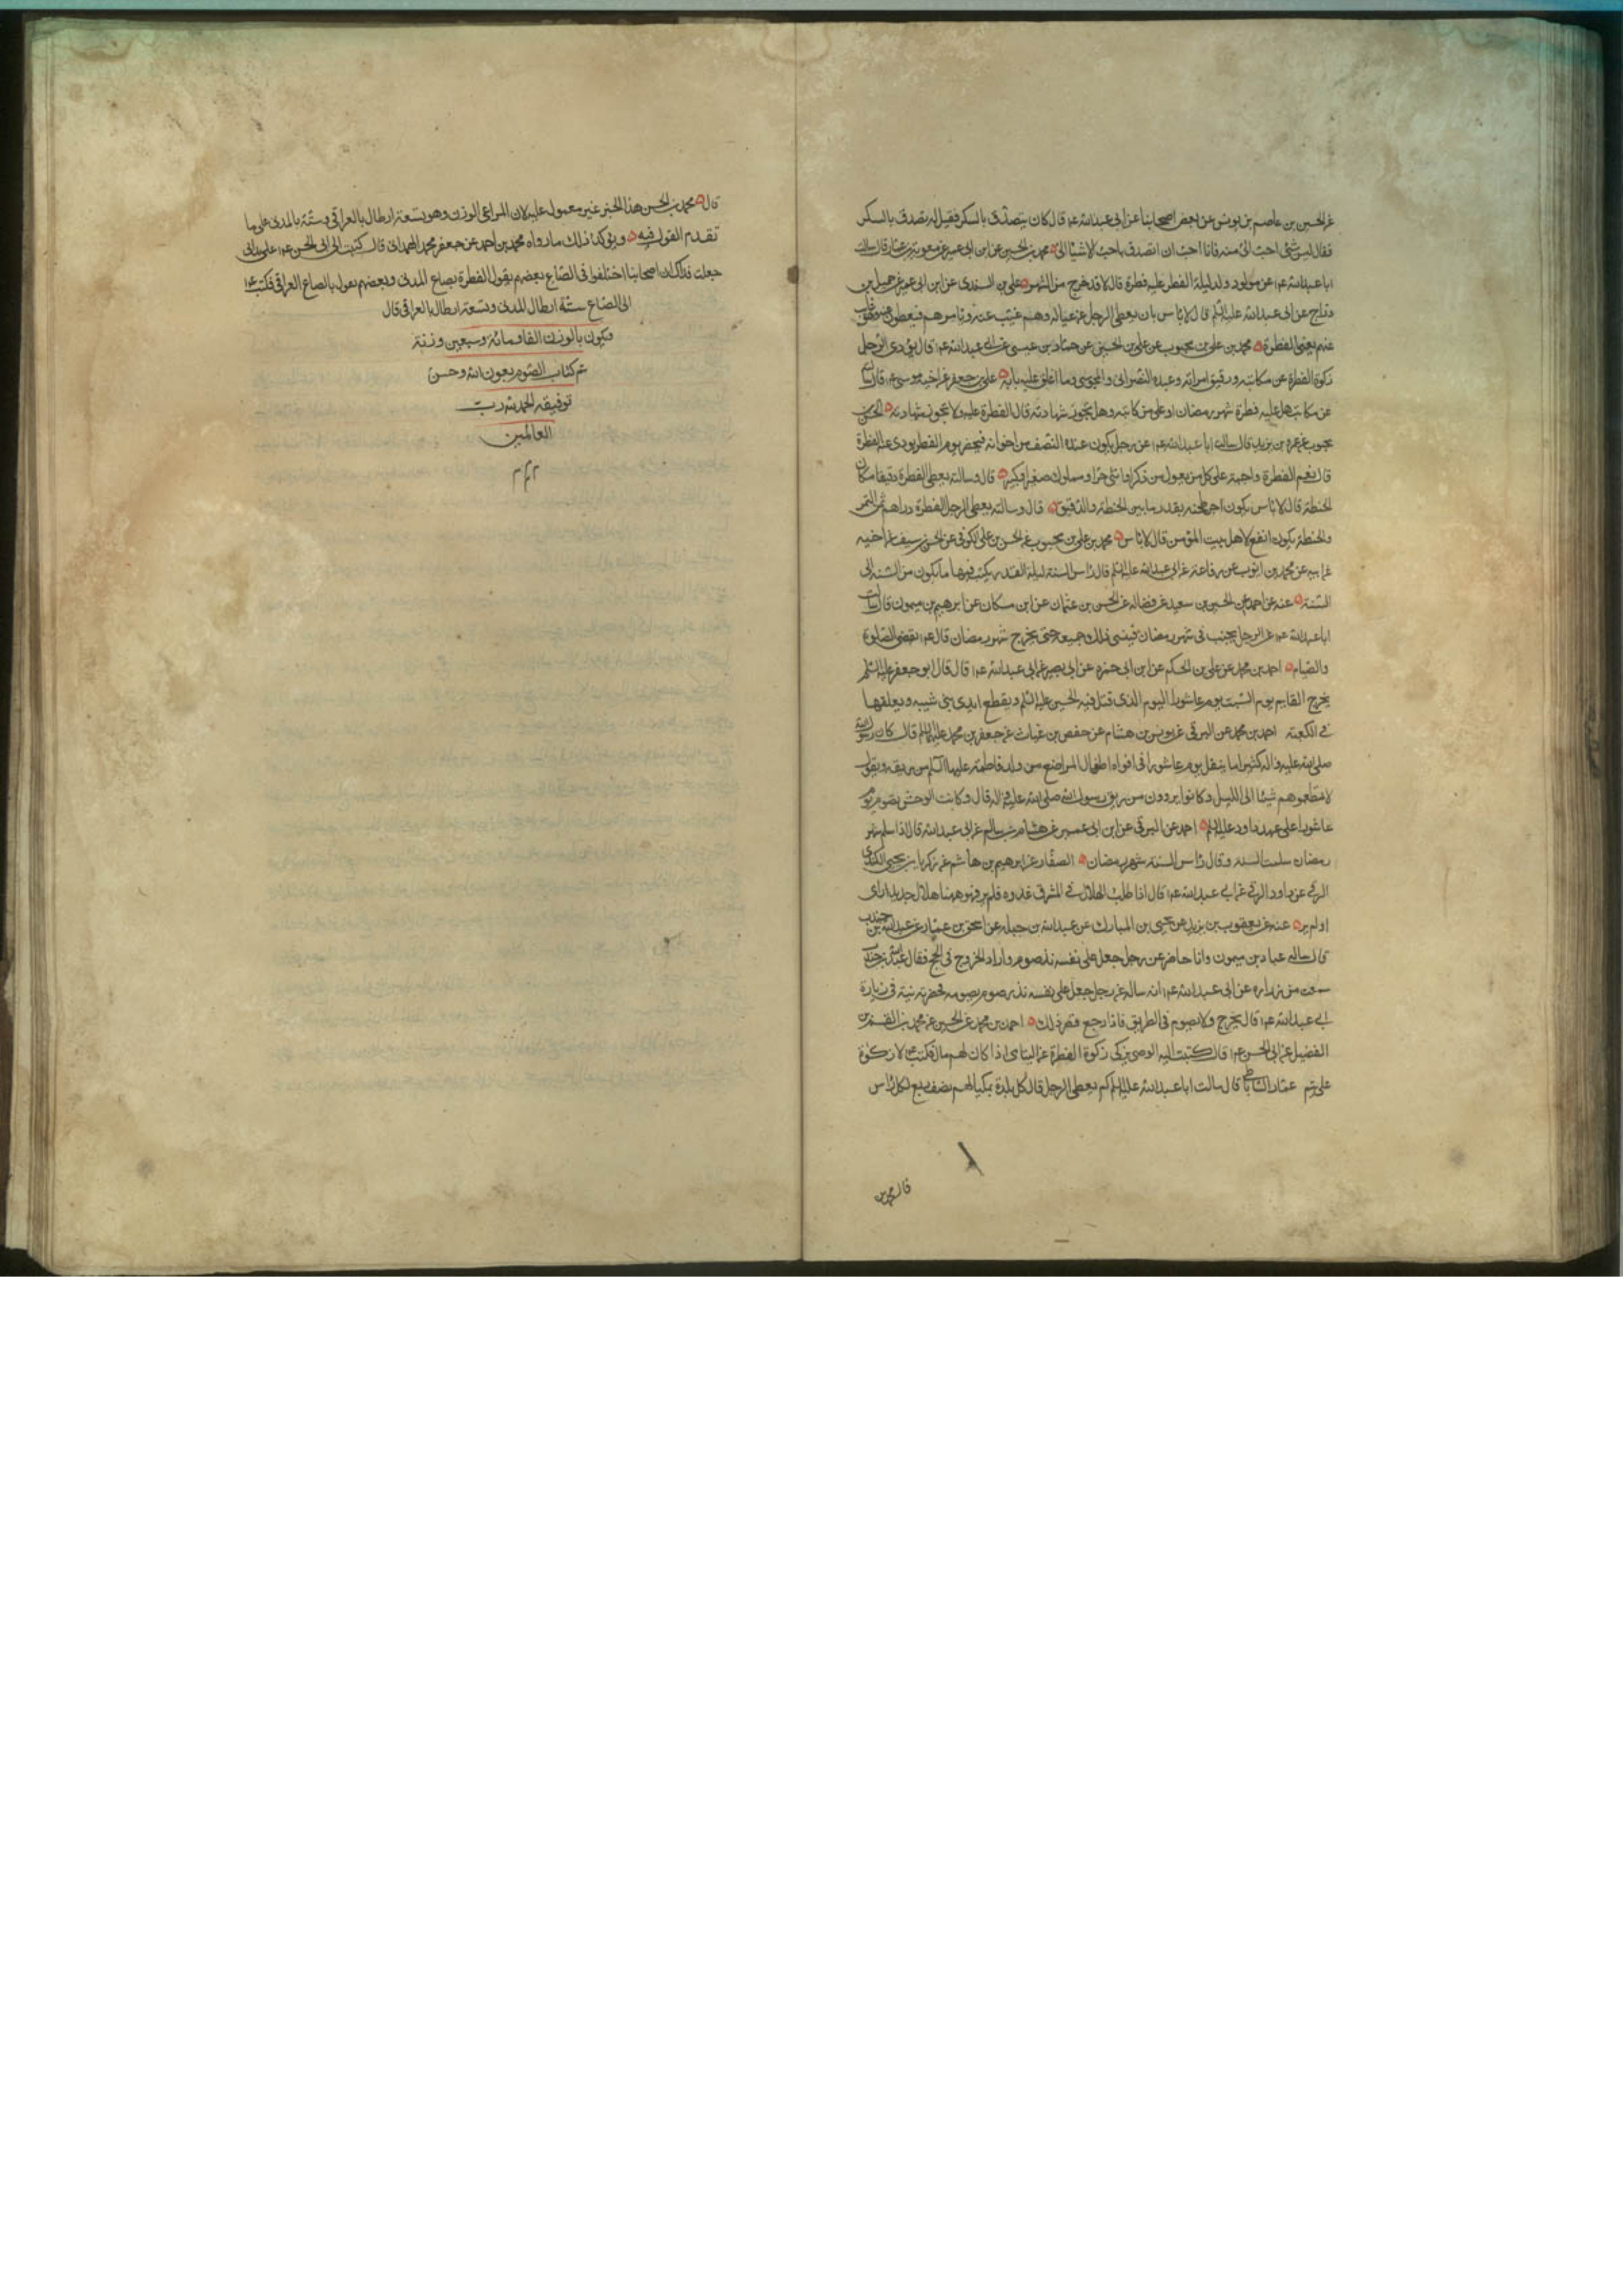 عن الحسين بن عاصم بن يونس عن بعض اصحابنا عن ابى عبدالله ع قال كان يتصدق بالسكر فقيل له يتصدق بالسكر
فقال ليس شئ احب الى منه فانا احب ان اتصدق باحب الاشيا الى محمد بن الحسين عن ابن ابى عمير عن معوية بن عمار قال سالت
اباعبدالله ع عن مولود ولد ليلة الفطر عليه فطرة قال لا قد خرج من الشهر على بن السندى عن ابن ابى عمير عن جميل بن
دراج عن ابى عبدالله عليه السلم قال لا باس بان يعطى الرجل عن عياله وهم غيب عنه ويامرهم فيعطون عنه وهو غايب
عنهم يعنى الفطرة محمد بن على بن محبوب عن على بن الحسين عن حماد بن عيسى عن ابى عبدالله ع قال يؤدى الرجل
زكوة الفطرة عن مكاتبه ورقيق امراته وعبده النصرانى والمجوسى وما اغلق عليه بابه على بن جعفر عن اخيه موسى ع قال سالته
عن مكاتب هل عليه فطرة شهر رمضان او على من كاتبه وهل تجوز شهادته قال الفطرة عليه ولا تجوز شهادته الحسن بن
محبوب عن عمر بن يزيد قال سالت اباعبدالله ع عن رجل يكون عنده الضيف من اخوانه فيحضر يوم الفطر يودى عنه الفطرة
قال نعم الفطرة واجبة على كل من يعول من ذكر او انثى حر او مملوك صغير او كبير قال وسالته يعطى الفطرة دقيقا مكان
الحنطة قال لا باس يكون اجر طحنه بقدر ما بين الحنطة والدقيق قال وسالته يعطى الرجل الفطرة دراهم ثمن التمر
والحنطة يكون انفع لاهل بيت المؤمن قال لا باس محمد بن على بن محبوب عن الحسن بن على الكوفى عن الحسن بن سيف عن اخيه
عن ابيه عن محمد بن ايوب عن رفاعة عن ابى عبدالله عليه السلم قال راس السنة ليلة القدر يكتب فيها ما يكون من السنة الى
السنة عنه عن احمد عن الحسين بن سعيد عن فضاله عن الحسين بن عثمان عن ابن مسكان عن ابرهيم بن ميمون قال سالت
اباعبدالله ع عن الرجل يجنب فى شهر رمضان فينسى ذلك جميعه حتى يخرج شهر رمضان قال ع يقضى الصلوة
والصيام احمد بن محمد عن على بن الحكم عن ابن ابى حمزه عن ابى بصير عن ابى عبدالله ع قال قال ابو جعفر عليه السلم
يخرج القايم يوم السبت يوم عاشورا اليوم الذى قتل فيه الحسين عليه السلم ويقطع ايدى بنى شيبه ويعلقها
فى الكعبة احمد بن محمد عن البرقى عن يونس بن هشام عن حفص بن غياث عن جعفر بن محمد عليه السلم قال كان رسول الله
صلى الله عليه واله كثيرا ما يتفل يوم عاشورا فى افواه اطفال المراضع من ولد فاطمة عليها السلم من ريقه ويقول
لا تطعموهم شيئا الى الليل وكانوا يروون من ريق رسول الله صلى الله عليه واله قال وكانت الوحش تصوم يوم
عاشورا على عهد داود عليه السلم احمد عن البرقى عن ابن ابى عمير عن هشام بن سالم عن ابى عبدالله قال اذا سلم شهر
رمضان سلمت السنة وقال راس السنة شهر رمضان الصفار عن ابرهيم بن هاشم عن زكريا بن يحيى الكندى
الرقى عن داود الرقى عن ابى عبدالله ع قال اذا طلب الهلال فى المشرق غدوه فلم ير فهو ههنا هلال جديد راى
او لم ير عنه عن يعقوب بن يزيد عن يحيى بن المبارك عن عبدالله بن جبله عن اسحق بن عمار عن عبدالله بن جندب
قال ساله عباد بن ميمون وانا حاضر عن رجل جعل على نفسه نذر صوم واراد الخروج فى الحج فقال عبدالله بن جندب
سمعت من زراره عن ابى عبدالله ع انه ساله عن رجل جعل على نفسه نذر صوم يصومه فحضرته نية فى زيارة
ابى عبدالله ع قال يخرج ولا يصوم فى الطريق فاذا رجع قضى ذلك احمد بن محمد عن الحسين عن محمد بن القسم بن
الفضيل عن ابى الحسن ع قال كتبت اليه الوصى يزكى زكوة الفطرة عن اليتامى اذا كان لهم مال فكتب ع لا زكوة
على يتيم عمار الساباطى قال سالت اباعبدالله عليه السلم كم يعطى الرجل قال كل بلدة بمكيالهم نصف ربع لكل راس
قال محمد بن
قال محمد بن الحسن هذا الخبر غير معمول عليه لان المراعى الوزن وهو تسعة ارطال بالعراقى وستة بالمدنى على ما
تقدم القول فيه ويؤكد ذلك ما رواه محمد بن احمد عن جعفر بن محمد الهمدانى قال كتبت الى ابى الحسن ع على يدى ابى
جعلت فداك ان اصحابنا اختلفوا فى الصاع بعضهم يقول الفطرة بصاع المدنى وبعضهم يقول بالصاع العراقى فكتب ع
الى الصاع ستة ارطال بالمدنى وتسعة ارطال بالعراقى قال
ويكون بالوزن الفا ومائة وسبعين وزنة
تم كتاب الصوم بعون الله وحسن
توفيقه الحمد لله رب
العالمين